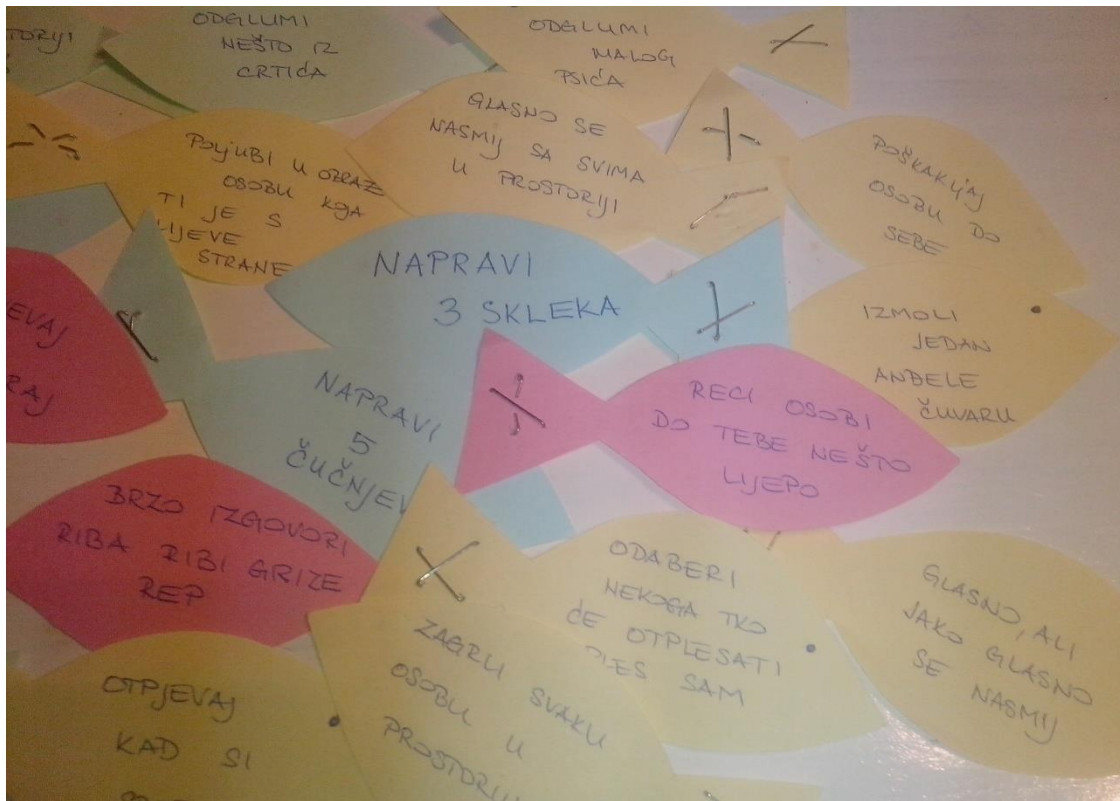 ODGLUMI
NEŠTO IZ
CRTIĆA
ODGLUMI
MALOG
PSIĆA
POLJUBI U OBRAZ
OSOBU KOJA
TI JE S
LIJEVE
STRANE
GLASNO SE
NASMIJ SA SVIMA
U PROSTORIJI
POŠKAKLJAJ
OSOBU DO
SEBE
NAPRAVI
3 SKLEKA
IZMOLI
JEDAN
ANĐELE
ČUVARU
NAPRAVI
5
ČUČNJEV
RECI OSOBI
DO TEBE NEŠTO
LIJEPO
BRZO IZGOVORI
RIBA RIBI GRIZE
REP
ODABERI
NEKOGA TKO
ĆE OTPLESATI
PLES SAM
GLASNO, ALI
JAKO GLASNO
SE NASMIJ
OTPJEVAJ
KAD SI
ZAGRLI SVAKU
OSOBU U
PROSTORIJI